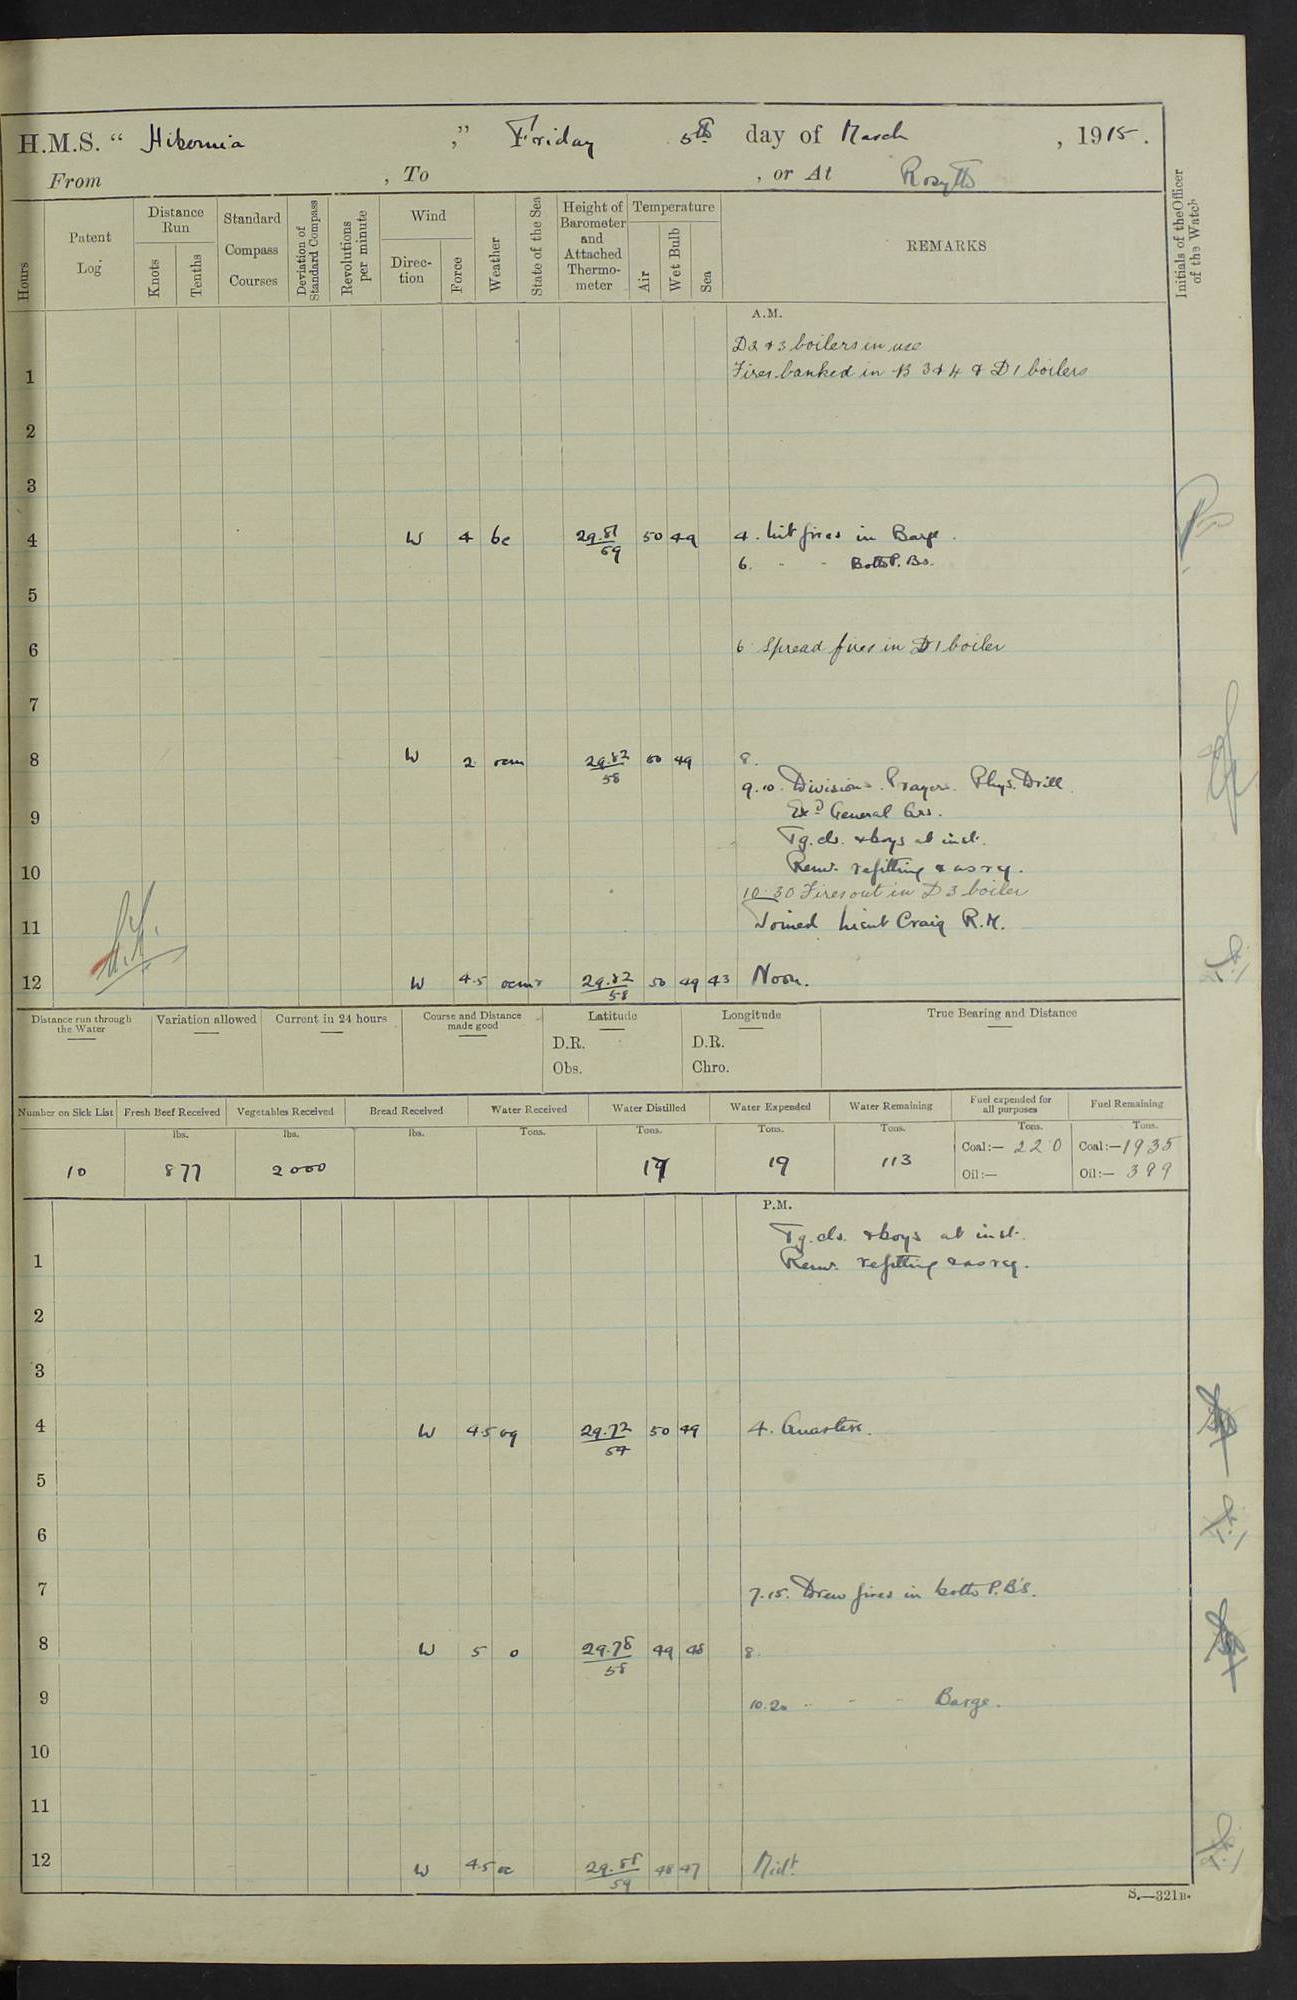 H.M.S. " Hibernia " Friday 5th day of March , 1915.
From , To , or At Rosyth
Hours
Patent Log.
Distance Run
Knots
Tenths
Standard Compass Courses
Deviation of Standard Compass
Revolutions per minute
Wind
Direction
Force
Weather
State of the Sea
Height of Barometer and Attached Thermometer
Temperature
Air
Wet Bulb
Sea
REMARKS
Initials of the Officer of the Watch
A.M.
D2 & 3 boilers in use
1 Fires banked in B 3 & 4 & D1 boilers
2
3
4 W 4 bc 29.81 59 50 49 4. Lit fires in Barge.
6. " " Both P. Bs.
5
6 6 Spread fires in D1 boiler
7
8 W 2 ocm 29.82 58 50 49 8.
9.10. Divisions. Prayers. Phys. Drill
9 Exd General Qrs.
Tg. cls. & boys at inst.
10 Remr. refitting & as req.
10.30 Fires out in D 3 boiler
11 Joined Lieut Craig R.M.
12 W 4.5 29.82 58 50 49 43 Noon.
Distance run through the Water
Variation allowed
Current in 24 hours
Course and Distance made good
Latitude
D.R.
Obs.
Longitude
D.R.
Chro.
True Bearing and Distance
Number on Sick List Fresh Beef Received Vegetables Received Bread Received Water Received Water Distilled Water Expended Water Remaining Fuel expended for all purposes Fuel Remaining
lbs. lbs. lbs. Tons. Tons. Tons. Tons. Tons. Tons.
10 877 2000 19 19 113 Coal:— 220 Coal:—1935
Oil:— Oil:— 399
P.M.
Tg. cls. & boys at inst.
1 Remr. refitting & as req.
2
3
4 W 4.5 og 29.72 57 50 49 4. Quarters.
5
6
7 7.15. Drew fires in both P.B's.
8 W 5 o 29.78 58 49 48 8.
9 10.20 " " " Barge.
10
11
12 W 4.5 oc 29.88 59 48 47 Midt.
S.—321B.